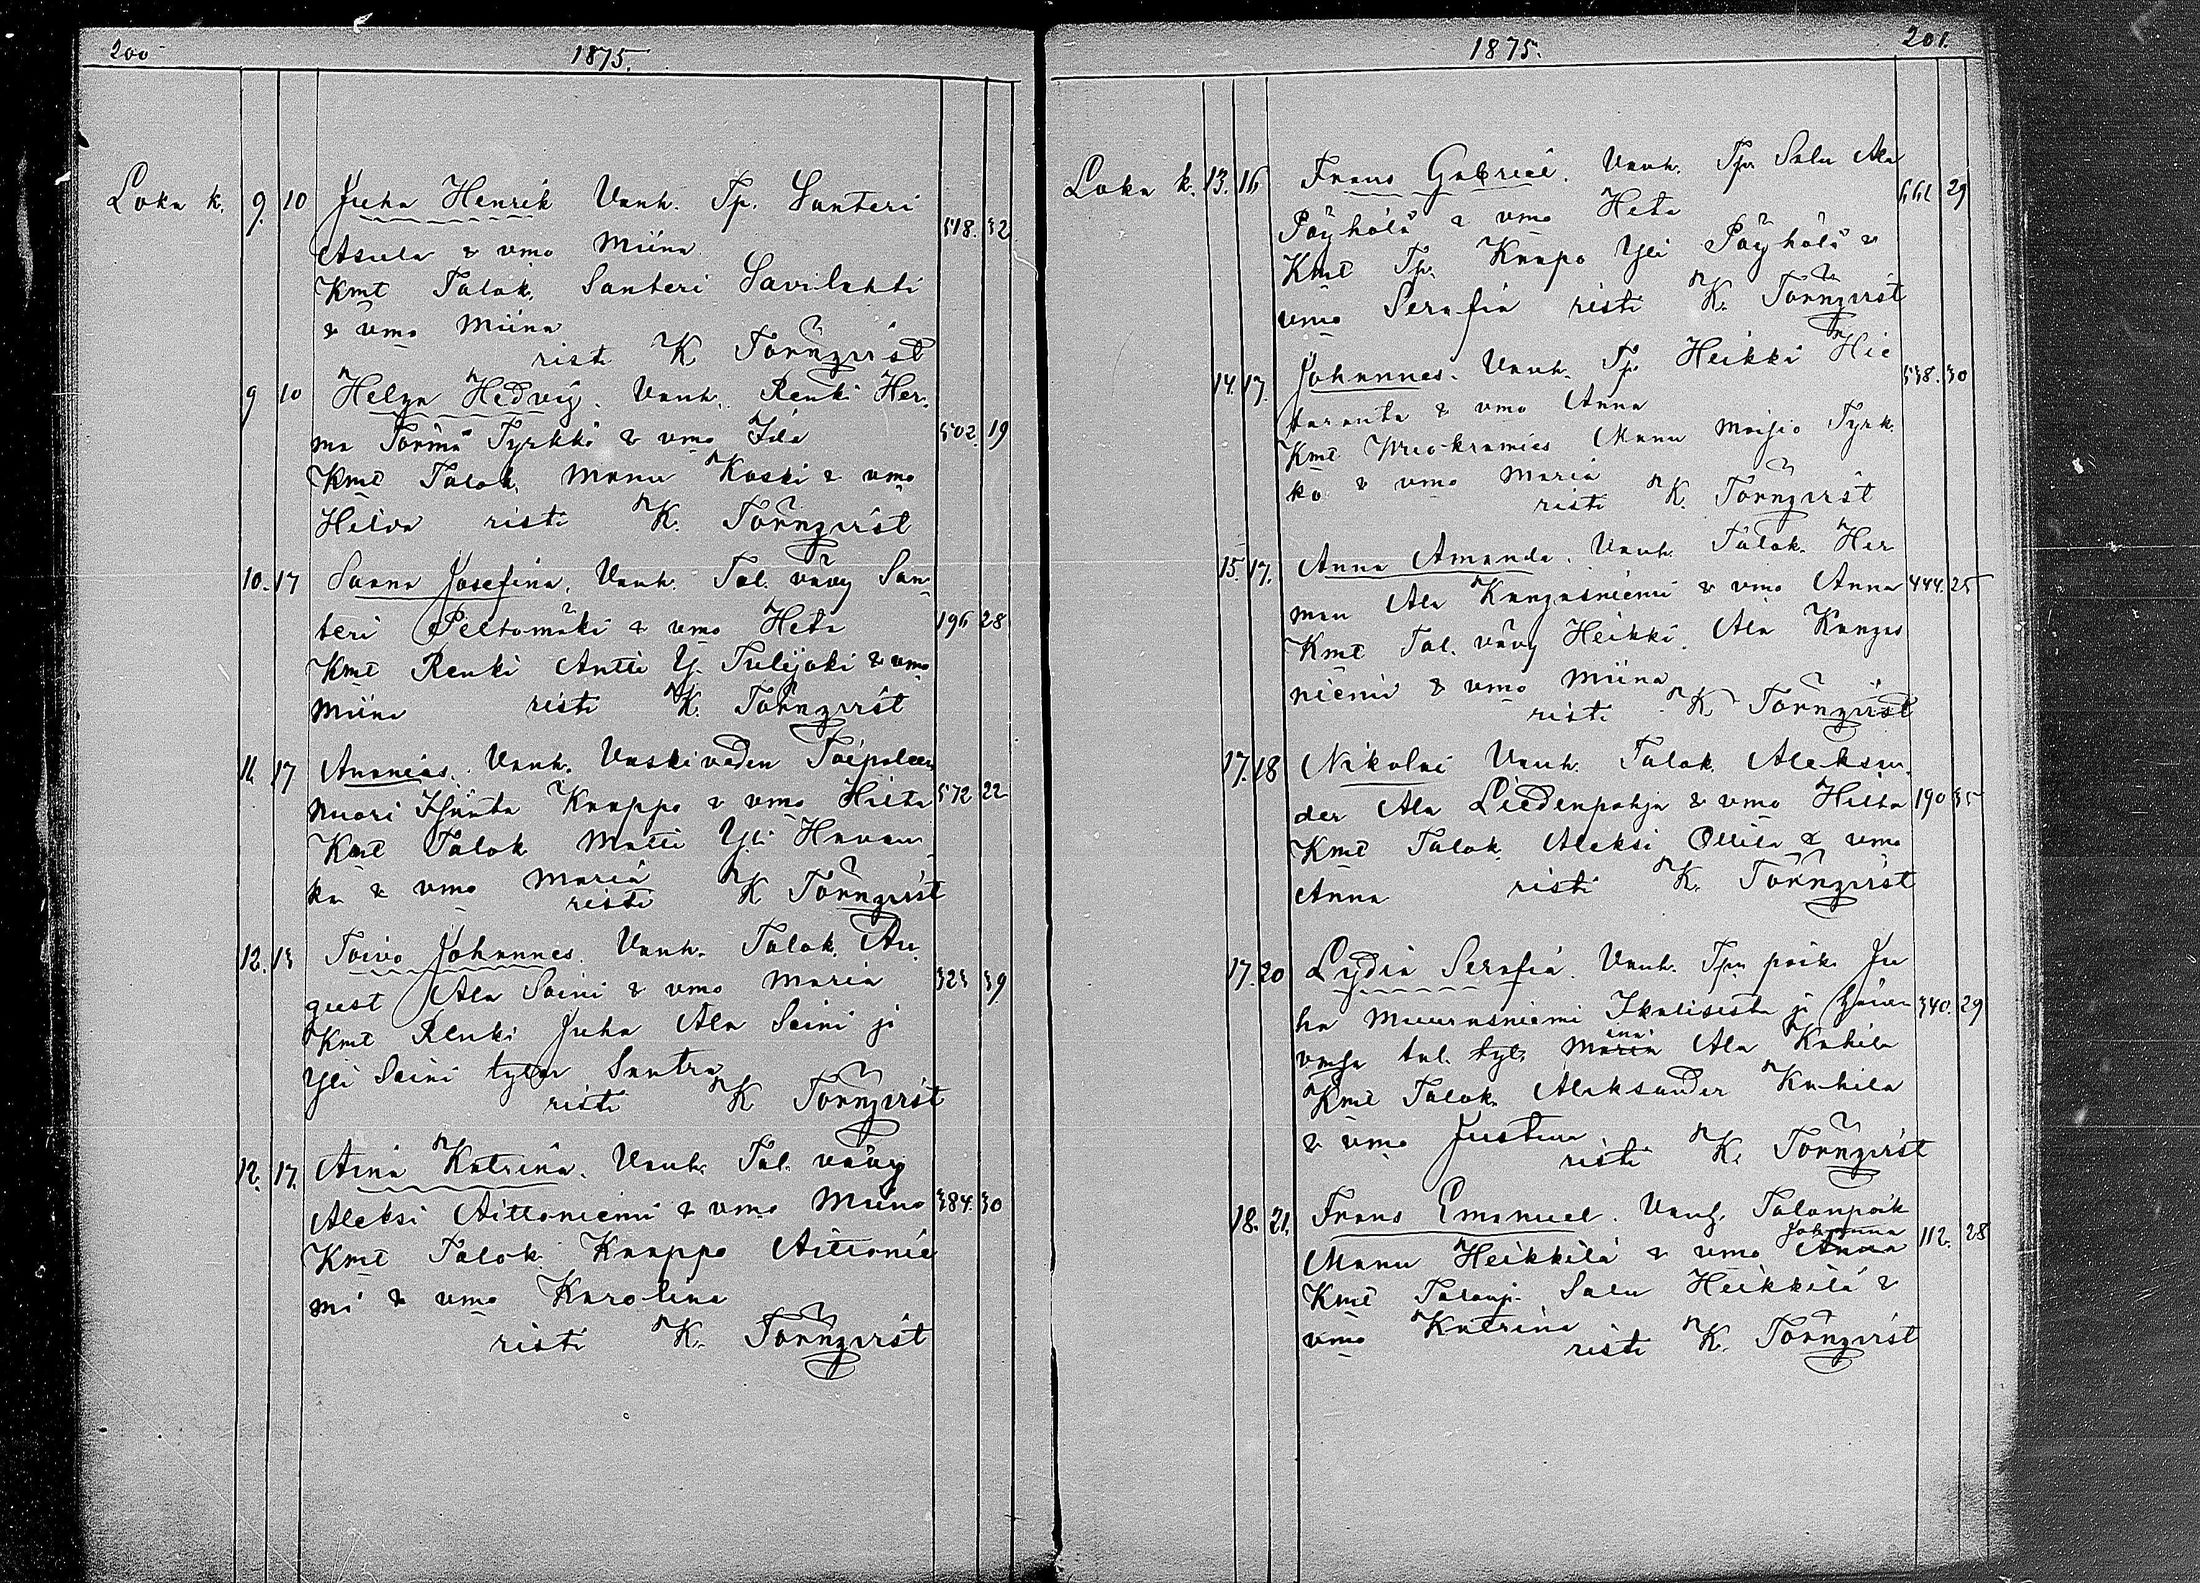 200
1875.
Loka k. 9. 10 Juha Henrik Vanh. Tp. Santeri
Asula & vmo Miina 518. 32
Kmt Talok. Santeri Savilahti
& vmo Miina
risti K. Törnqvist
9 10 Helga Hedvig. Vanh. Renki Her-
ma Törmä Tyrkkö & vmo Ida 502. 19
Kmt Talok. Manu Koski & vmo
Helva risti K. Törnqvist
10. 17 Sanna Josefina. Vanh. Tal. vävy San-
teri Peltomäki & vmo Heta 196 28
Kmt Renki Antti Y. Tulijoki & vmo
Miina risti K. Törnqvist
11. 17 Ananias. Vanh. Vaskiveden Taipaleen
nuori Isäntä Kaappo & vmo Hilta 572 22
Kmt Talok. Matti Yli Havan-
ka & vmo Maria
risti K Törnqvist
12. 13 Toivo Johannes. Vanh. Talok. Au-
gust Ala Soini & vmo Maria 323 39
Kmt Renki Juha Ala Soini ja
Yli Soini tytär Santra
risti K Törnqvist
12. 17. Aina Katriina. Vanh. Tal. vävy
Aleksi Aittoniemi & vmo Miina 384. 30
Kmt Talok. Kaappo Aittonie
mi & vmo Karolina
risti K. Törnqvist
1875.
201.
Loka k. 13. 16 Frans Gabriel. Vanh. Tp. Salu Ala
Pöyhölä & vmo Heta 661 29
Kmt Tp. Kaapo Yli Pöyhölä &
vmo Serafia risti K. Törnqvist
14. 17. Johannes. Vanh. Tp. Heikki Hie
taranta & vmo Anna 538. 30
Kmt Vuokramies Manu Moijio Tyrk-
kö & vmo Maria
risti K. Törnqvist
15. 17. Anna Amanda. Vanh. Talok. Her
man Ala Kangasniemi & vmo Anna 444. 25
Kmt Tal. vävy Heikki Ala Kangas
niemi & vmo Miina
risti K Törnqvist
17. 18 Nikolai Vanh. Talok. Aleksan-
der Ala Liedenpohja & vmo Hilta 190 35
Kmt Talok. Aleksi Ollila & vmo
Anna risti K. Törnqvist
17. 20 Lydia Serafia. Vanh. Tpn poik. Ju
ha Muurasniemi Ikalisista ja 340. 29
tal. tyt. Maria Ala Kahila
Kmt Talok. Aleksander Kahila
& vmo Justina
risti K. Törnqvist
18. 21. Frans Emanuel. Vanh. Talonpoik
Johanna
Manu Heikkilä & vmo Anna 112. 28
Kmt Talonp. Salu Heikkilä &
vmo Katrina
risti K. Törnqvist